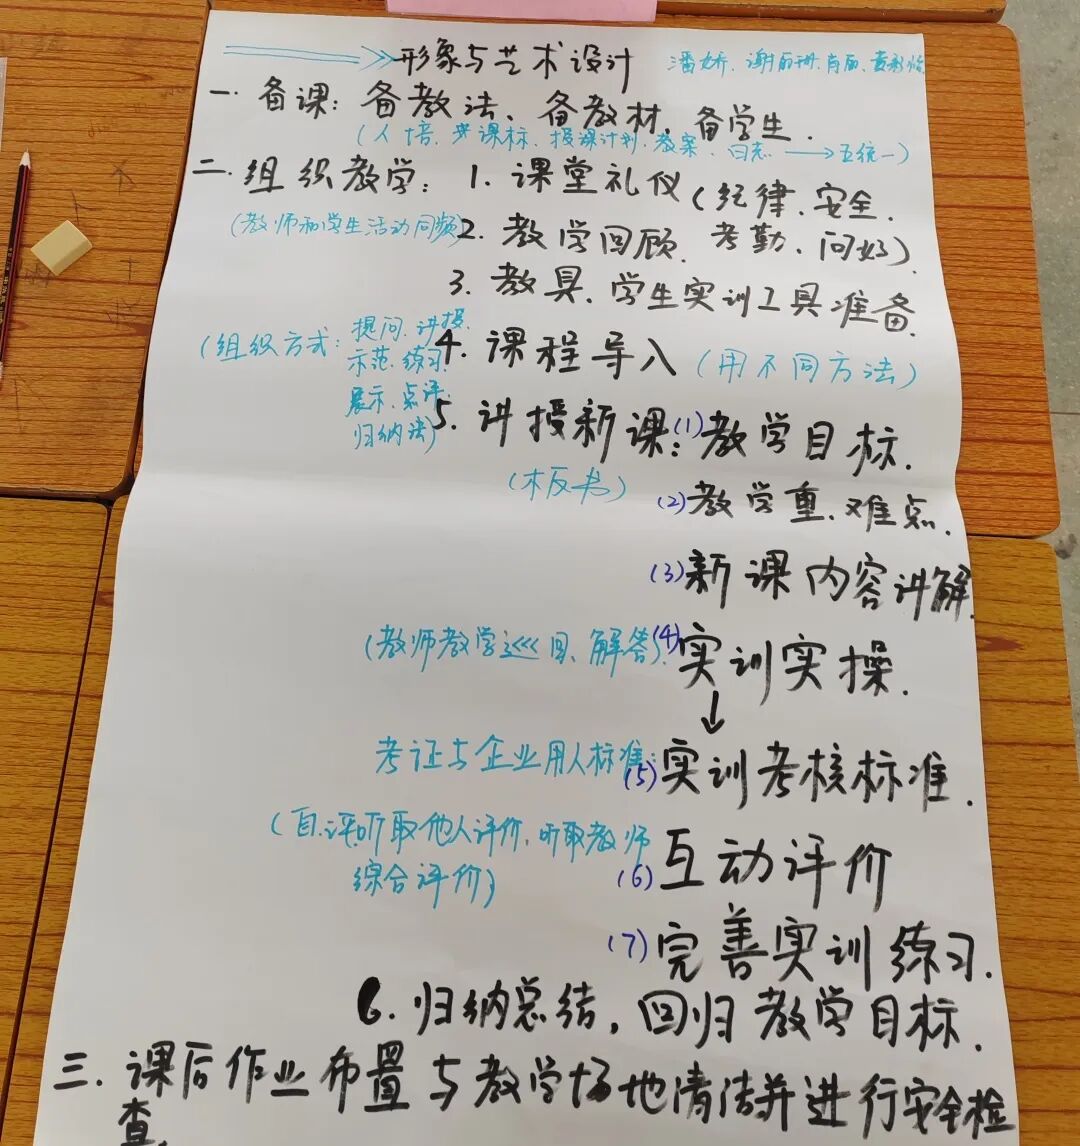 形象与艺术设计 潘娇、谢丽珊、肖丽、黄彩怡
一. 备课: 备教法、备教材、备学生.
(人培、课标、授课计划、教案、日志 → 五统一)
二. 组织教学: 1. 课堂礼仪(纪律、安全、
考勤、问好).
(教师和学生活动同频)
2. 教学回顾.
3. 教具、学生实训工具准备.
(组织方式: 提问、讲授、
示范、练习、
展示、点评、
归纳法)
4. 课程导入 (用不同方法)
5. 讲授新课: (1) 教学目标.
(板书)
(2) 教学重、难点.
(3) 新课内容讲解.
(教师教学巡回、解答) (4) 实训实操.
↓
考证与企业用人标准: (5) 实训考核标准.
(自评,听取他人评价,听取教师
综合评价)
(6) 互动评价
(7) 完善实训练习.
6. 归纳总结, 回归教学目标.
三. 课后作业布置与教学场地清洁并进行安全检
查.